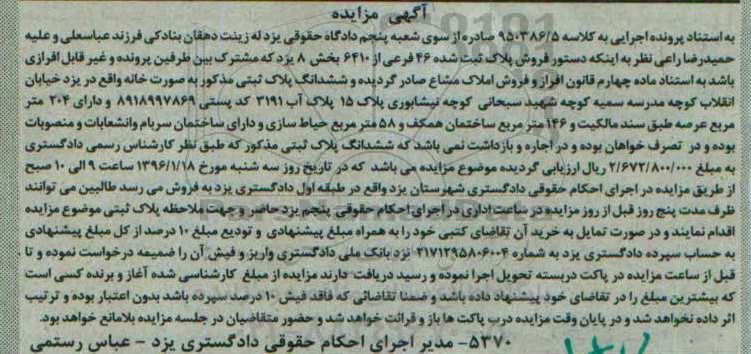 آگهی مزایده
به استناد پرونده اجرایی به کلاسه ۹۵۰۳۸۶/۵ صادره از سوی شعبه پنجم دادگاه حقوقی یزد له زینت دهقان بنادکی فرزند عباسعلی و علیه
حمیدرضا راعی نظر به اینکه دستور فروش پلاک ثبت شده ۴۶ فرعی از ۶۴۱۰ بخش ۸ یزد که مشترک بین طرفین پرونده و غیر قابل افرازی
باشد به استناد ماده چهارم قانون افراز و فروش املاک مشاع صادر گردیده و ششدانگ پلاک ثبتی مذکور به صورت خانه واقع در یزد خیابان
انقلاب کوچه مدرسه سمیه کوچه شهید سبحانی کوچه نیشابوری پلاک ۱۵ پلاک آب ۳۱۹۱ کد پستی ۸۹۱۸۹۹۷۸۶۹ و دارای ۲۰۴ متر
مربع عرصه طبق سند مالکیت و ۱۴۶ متر مربع ساختمان همکف و ۵۸ متر مربع حیاط سازی و دارای ساختمان سرپام وانشعابات و منصوبات
بوده و در تصرف خواهان بوده و در اجاره و بازداشت نمی باشد که ششدانگ پلاک ثبتی مذکور که طبق نظر کارشناس رسمی دادگستری
به مبلغ ۲/۶۷۲/۸۰۰/۰۰۰ ریال ارزیابی گردیده موضوع مزایده می باشد که در تاریخ روز سه شنبه مورخ ۱۳۹۶/۱/۱۸ ساعت ۹ الی ۱۰ صبح
از طریق مزایده در اجرای احکام حقوقی دادگستری شهرستان یزد واقع در طبقه اول دادگستری یزد به فروش می رسد طالبین می توانند
ظرف مدت پنج روز قبل از روز مزایده در ساعت اداری در اجرای احکام حقوقی پنجم یزد حاضر و جهت ملاحظه پلاک ثبتی موضوع مزایده
اقدام نمایند و در صورت تمایل به خرید آن تقاضای کتبی خود را به همراه مبلغ پیشنهادی و تودیع مبلغ ۱۰ درصد از کل مبلغ پیشنهادی
به حساب سپرده دادگستری یزد به شماره ۲۱۷۱۲۹۵۸۰۶۰۰۴ نزد بانک ملی دادگستری واریز و فیش آن را ضمیمه درخواست نموده و تا
قبل از ساعت مزایده در پاکت دربسته تحویل اجرا نموده و رسید دریافت دارند مزایده از مبلغ کارشناسی شده آغاز و برنده کسی است
که بیشترین مبلغ را در تقاضای خود پیشنهاد داده باشد و ضمنا تقاضائی که فاقد فیش ۱۰ درصد سپرده باشد بدون اعتبار بوده و ترتیب
اثر داده نخواهد شد و در پایان وقت مزایده درب پاکت ها باز و قرائت خواهد شد و حضور متقاضیان در جلسه مزایده بلامانع خواهد بود.
۵۳۷۰- مدیر اجرای احکام حقوقی دادگستری یزد - عباس رستمی